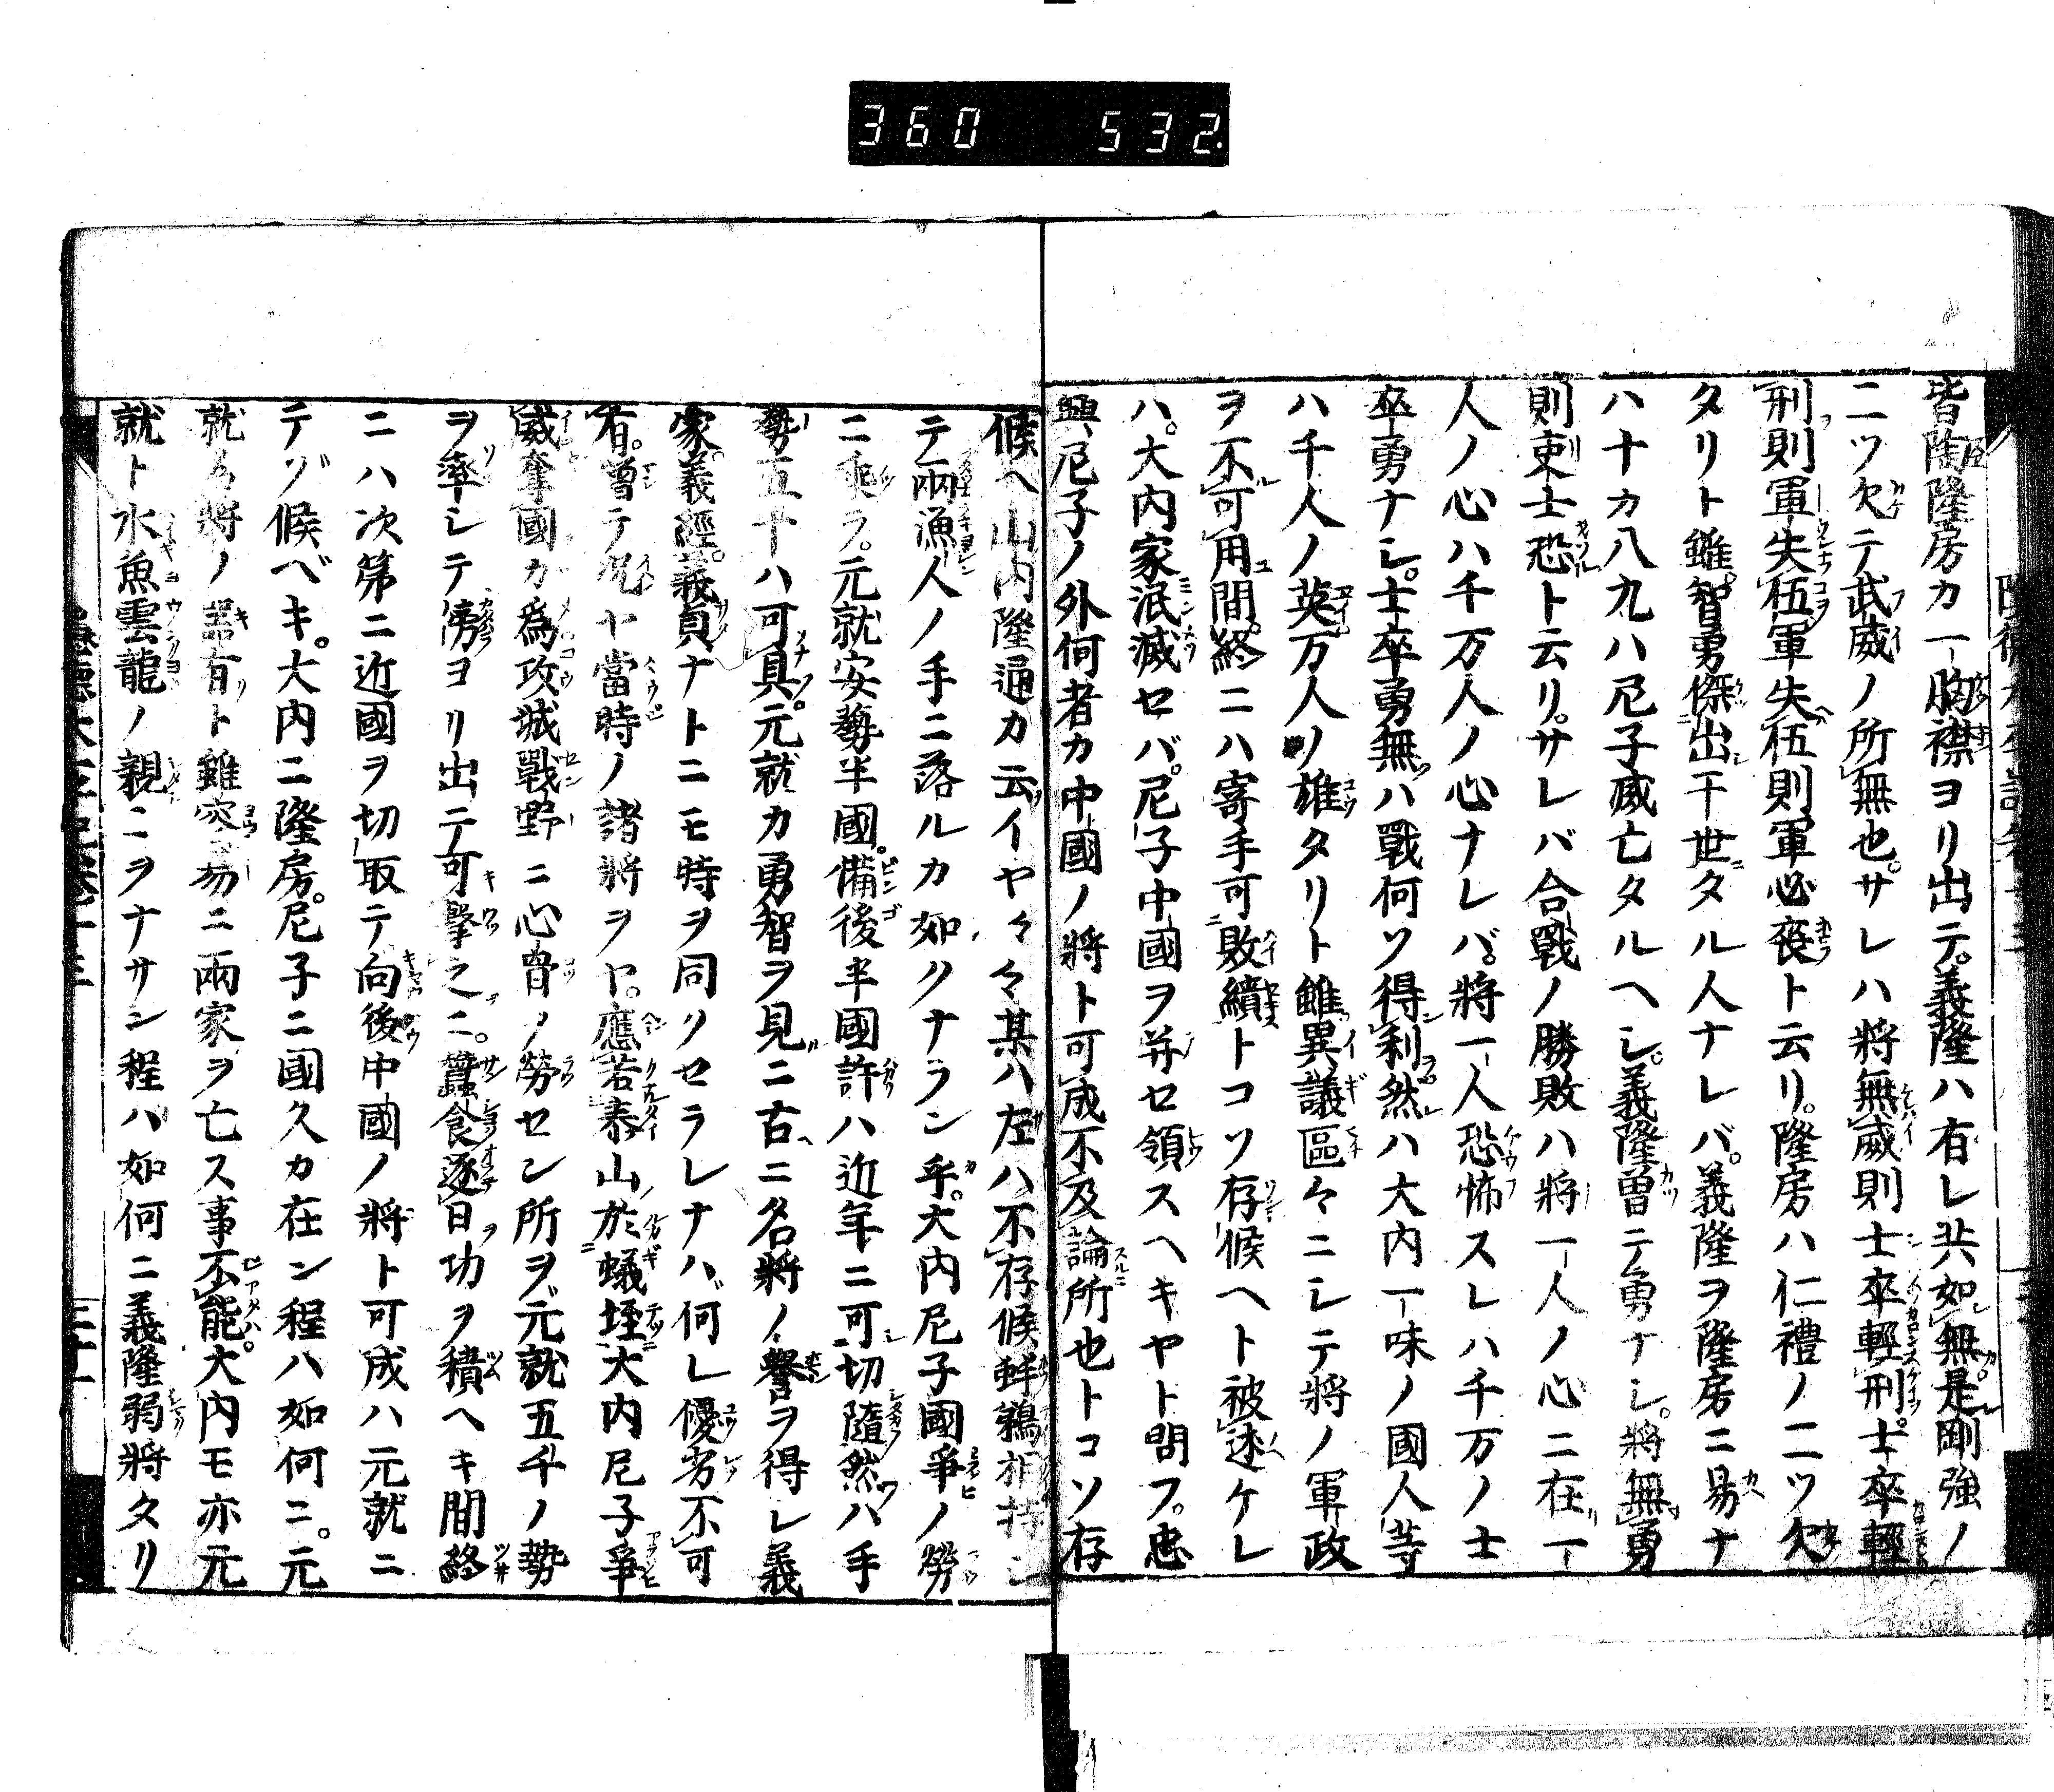 360 532
皆陶隆房カ一胸襟ヨリ出テ。義隆ハ有レ共如無是剛強ノ
二ツ欠テ武威ノ所無也。サレハ將無威則士卒輕刑士卒輕
刑則軍失伍軍失伍則軍必喪ト云リ。隆房ハ仁禮ノ二ツ欠
タリト雖。智勇傑出干世タル人ナレバ。義隆ヲ隆房ニ易ナ
ハ十カ八九ハ尼子滅亡タルヘシ。義隆曽テ勇ナシ。將無勇
則吏士恐ト云リ。サレバ合戰ノ勝敗ハ將一人ノ心ニ在一
人ノ心ハ千万人ノ心ナレバ。將一人恐怖スレハ千万ノ士
卒勇ナシ。士卒勇無ハ戰何ソ得利然ハ大内一味ノ國人等
ハ千人ノ英万人ノ雄タリト雖異議區々ニシテ將ノ軍政
ヲ不可用間。終ニハ寄手可敗績トコソ存候ヘト被述ケレ
ハ。大内家泯滅セバ。尼子中國ヲ并セ領スヘキヤト問フ。忠
興、尼子ノ外何者カ中國ノ將ト可成不及論所也トコソ存
候ヘ山内隆通カ云イヤ々々某ハ左ハ不存候蚌鷸相持シ
テ兩漁人ノ手ニ落ルカ如クナラン乎。大内尼子國爭ノ勞
ニ乘ラ。元就安藝半國。備後半國許ハ近年ニ可切隨然ハ手
勢五千ハ可具。元就カ勇智ヲ見ニ古ニ名將ノ譽ヲ得レ義
家。義經。義貞ナトニモ時ヲ同クセラレナハ何レ優劣不可
有。曽テ况ヤ當時ノ諸將ヲヤ。應若泰山於蟻垤大内尼子爭
威奪國カ爲攻城戰野ニ心膂ノ勞セン所ヲ元就五千ノ勢
ヲ率シテ傍ヨリ出テ可擊之ニ。蠶食逐日功ヲ積ヘキ間終
ニハ次第ニ近國ヲ切取テ向後中國ノ將ト可成ハ元就ニ
テゾ候ベキ。大内ニ隆房。尼子ニ國久カ在ン程ハ如何ニ。元
就名將ノ器有ト雖容易ニ兩家ヲ亡ス事不能。大内モ亦元
就ト水魚雲龍ノ親ニヲナサン程ハ如何ニ義隆弱將タリ